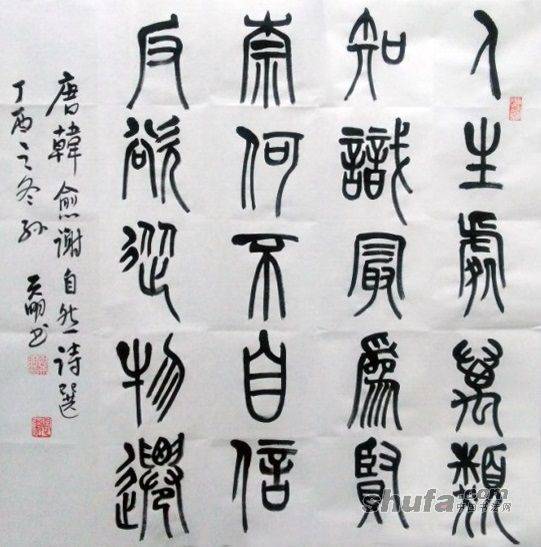 人生處萬類
知識最爲賢
奈何不自信
反欲從物遷
唐韓愈謝自然詩選
丁酉之冬孙明书
shufa.com
中国书法网